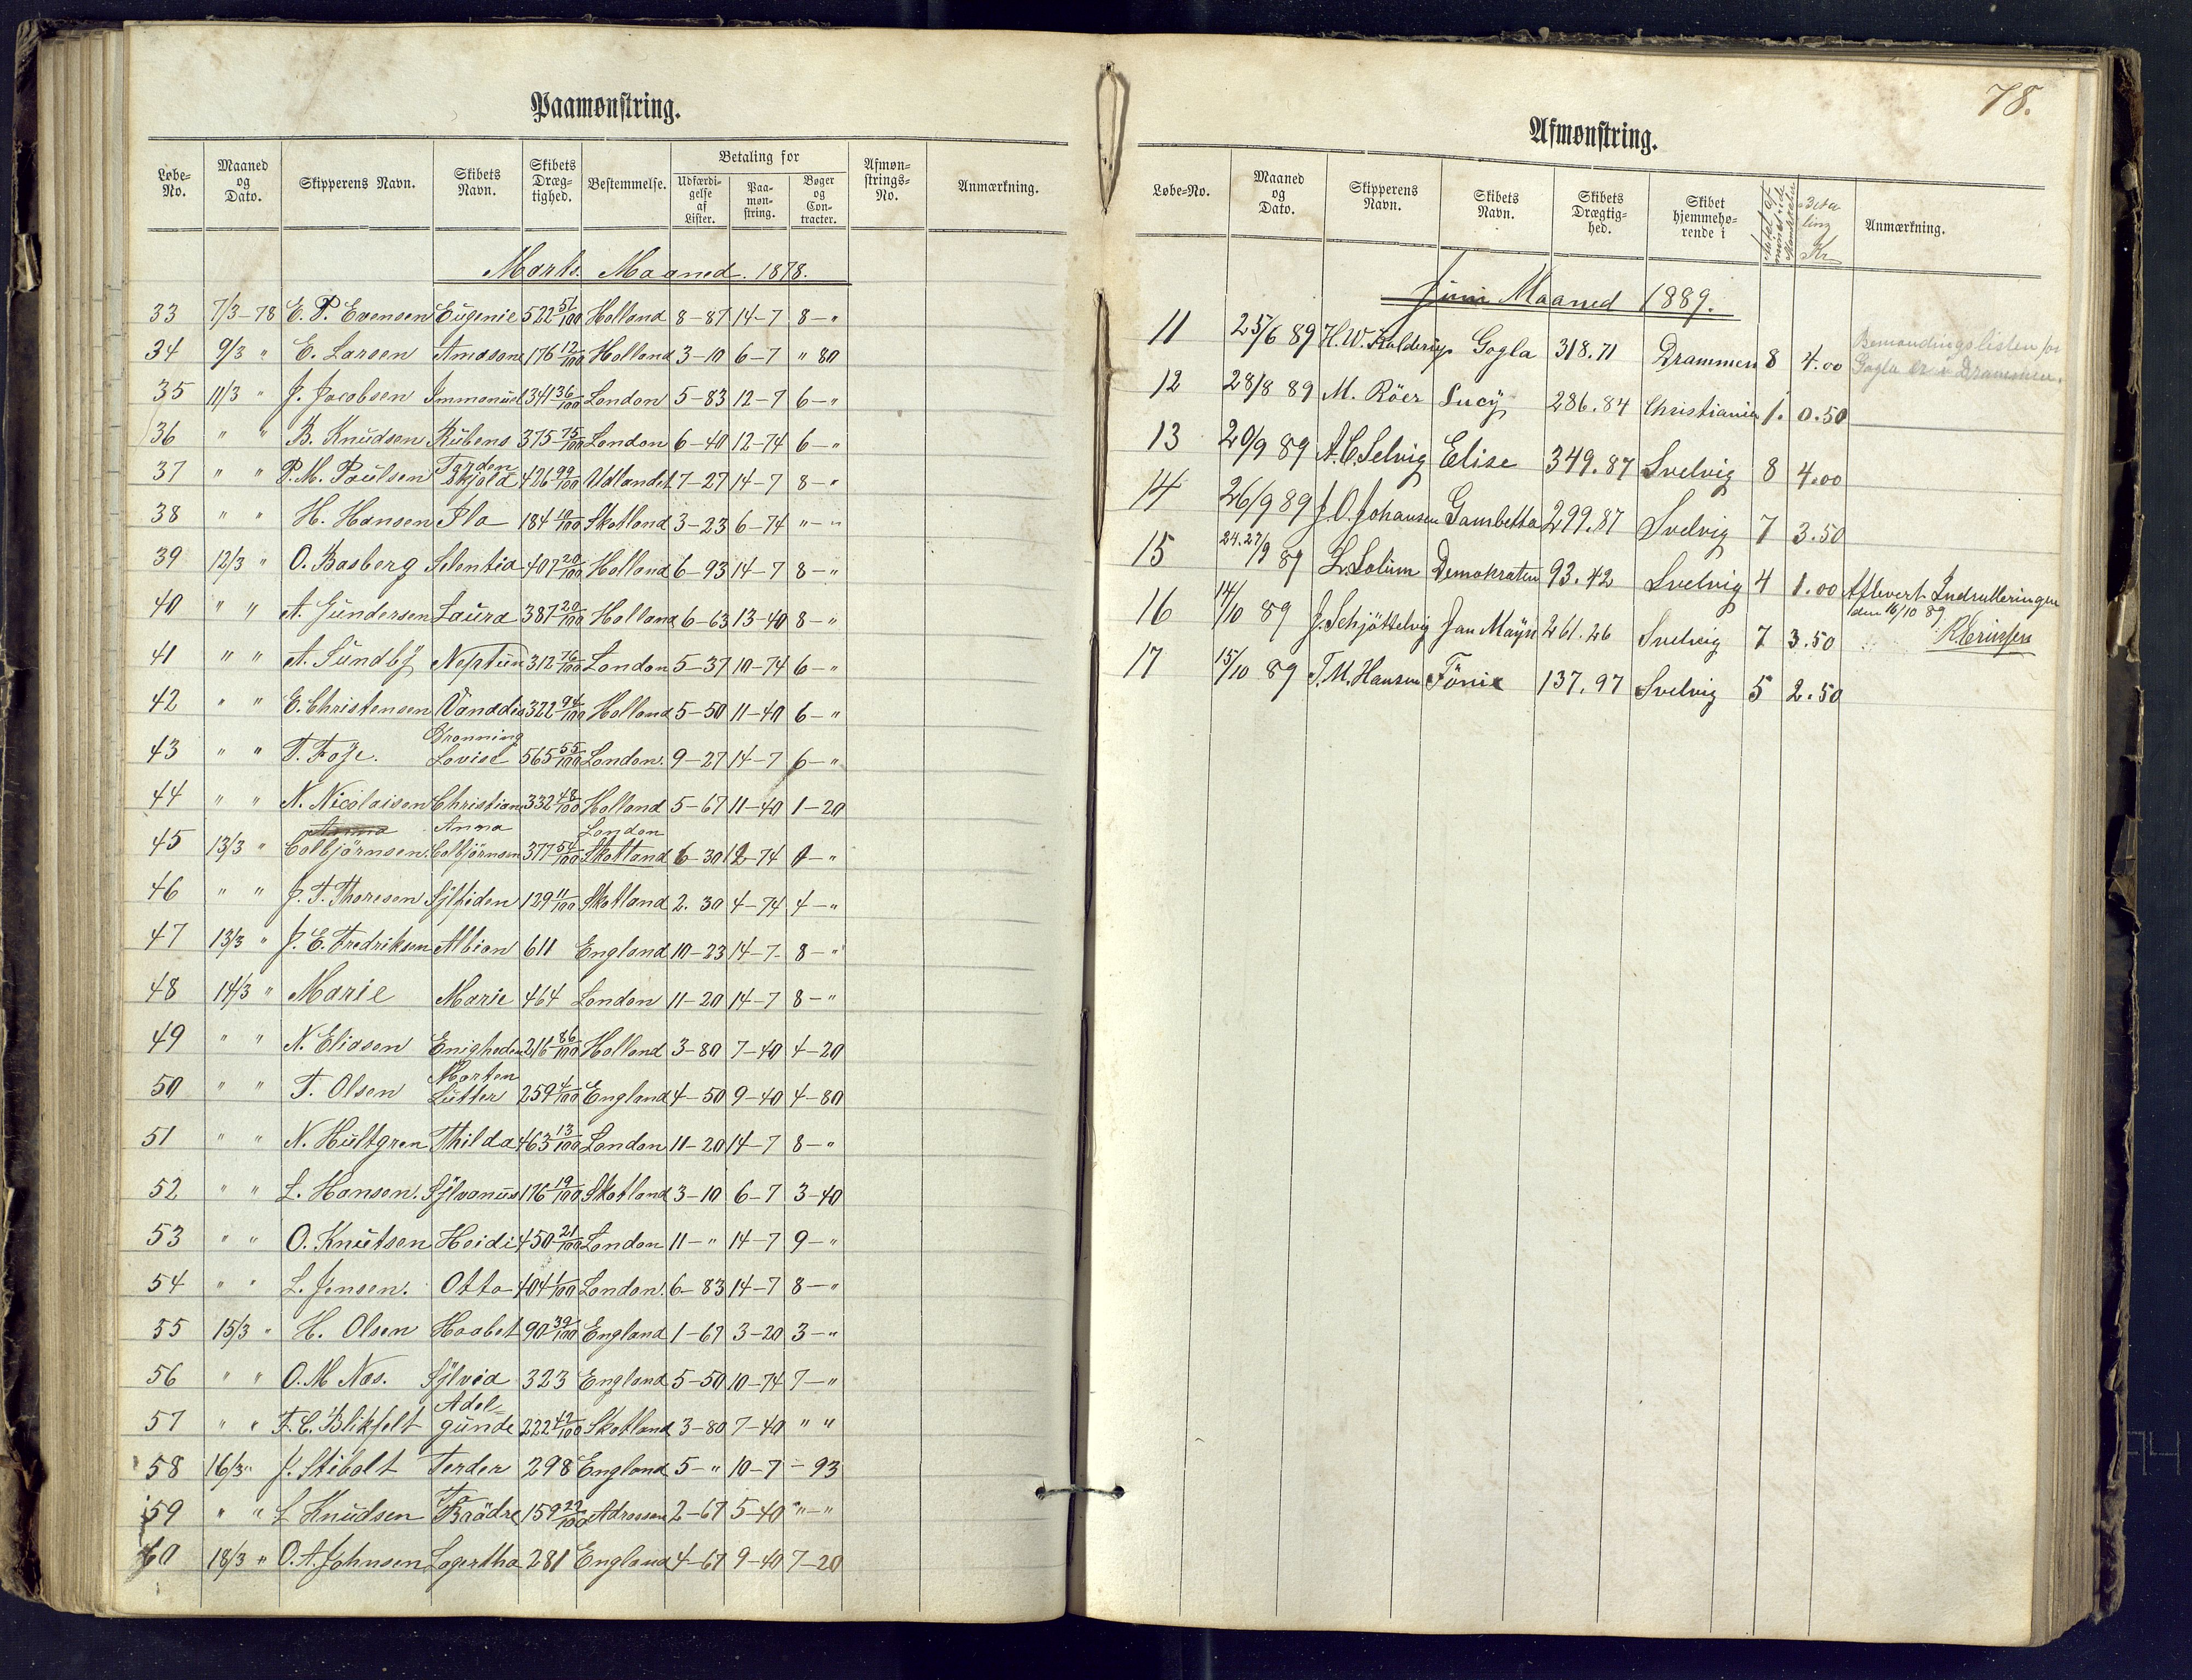 Paamønstring.
Løbe-No. | Maaned og Dato. | Skipperens Navn. | Skibets Navn. | Skibets Dræg-tighed. | Bestemmelse. | Betaling for | Afmøn-strings-No. | Anmærkning.
Udfærdi-gelse af Lister. | Paa-møn-string. | Bøger og Con-tracter.
Marts Maaned. 1878.
33 7/3-78 E. P. Evensen Eugenie 522 51/100 Holland 8-87 14-7 8-"
34 9/3 " E. Larsen Amasone 176 12/100 Holland 3-10 6-7 " 80
35 11/3 " J. Jacobsen Immanuel 341 36/100 London 5-83 12-7 6-"
36 " " B. Knudsen Rubens 375 75/100 London 6-40 12-74 6-"
37 " " P. M. Poulsen Tordenskjold 426 99/100 Udlandet 7-27 14-7 8-"
38 " " H. Hansen Pla 184 10/100 Skotland 3-23 6-74 "-"
39 12/3 " O. Basberg Selentia 407 20/100 Holland 6-93 14-7 8-"
40 " " A. Gundersen Laura 387 20/100 Holland 6-63 13-40 8-"
41 " " A. Sundby Neptun 312 76/100 London 5-37 10-74 6-"
42 " " E. Christensen Vanadis 322 94/100 Holland 5-50 11-40 6-"
43 " " T. Foje. Dronning Lovise 565 55/100 London. 9-27 14-7 6-"
44 " " N. Nicolaisen Christiane 332 48/100 Holland 5-67 11-40 1-20
45 13/3 " Anna Colbjörnsen. Anna Colbjörnsen 377 54/100 London Skotland 6-30 12-74 1-"
46 " " J. T. Thoresen Sylfiden 129 11/100 Skotland 2.30 4-74 4-"
47 13/3 " J. E. Fredriksen Albion 611 England 10-23 14-7- 8-"
48 14/3 " Marie Marie 464 London 11-20 14-7 8-"
49 " " N. Eliasen Enigheden 216 86/100 Holland 3-80 7-40 4-20
50 " " T. Olsen Morten Lutter 259 4/100 England 4-50 9-40 4-80
51 " " N. Hultgren Thilda 463 13/100 London 11-20 14-7 8-"
52 " " L. Hansen. Sylvanus 176 19/100 Skotland 3-10 6-7 3-40
53 " " O. Knutsen Heidi 450 21/100 London 11-" 14-7 9-"
54 " " L. Jensen. Otto 404 1/100 London. 6-83 14-7 8-"
55 15/3 " H. Olsen Haabet 90 39/100 England 1-67 3-20 3-"
56 " " O. M Næs. Sylvia 323 England 5-50 10-74 7-"
57 " " F. C. Blikfelt Adelgunde 222 42/100 Skotland 3-80 7-40 " "
58 16/3 " J. Stibolt Terder 298 England 5-" 10-7 -93
59 " " L Knudsen To Brödre 159 22/100 Adrossen 2-67 5-40 "-"
60 18/3 " O. A. Johnsen Lagertha 281 England 4-67 9-40 7-20
78.
Afmønstring.
Løbe-No. | Maaned og Dato. | Skipperens Navn. | Skibets Navn. | Skibets Drægtig-hed. | Skibet hjemmehø-rende i | Antal af | Betaling Kr | Anmærkning.
Juni Maaned 1889.
11 25/6 89 H. W. Kolderup Gogla 318.71 Drammen 8 4.00 Bemandingslisten for Gogla er i Drammen.
12 28/8 89 M. Röer Lucy 286.84 Christiania 1. 0.50
13 20/9 89 A. C. Selvig Elise 349.87 Svelvig 8 4.00
14 26/9 89 J. O. Johansen Gambetta 299.87 Svelvig 7 3.50
15 24.27/9 89 L. Solum Demokraten 93.42 Svelvig 4 1.00 Aflevert Indrulleringen den 16/10 89
16 14/10 89 J. Schjöttelvig Jan Mayn 261.26 Svelvig 7 3.50
17 15/10 89 T. M. Hansen Fönix 137.97 Svelvig 5 2.50